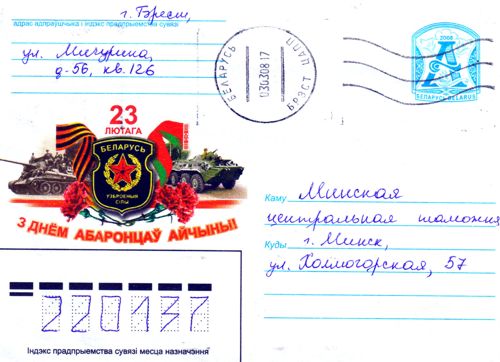 г. Брест,
адрас адпраўшчыка і індэкс прадпрыемства сувязі
ул. Мичурина,
д-56, кв. 126
БЕЛАРУСЬ
030308 17
БРЭСТ
ПАШТ
2008
А
БЕЛАРУСЬ BELARUS
23
ЛЮТАГА
БЕЛАРУСЬ
УЗБРОЕНЫЯ
СІЛЫ
З ДНЁМ АБАРОНЦАЎ АЙЧЫНЫ!
Каму Минская
центральная таможня
Куды г. Минск,
ул. Холмогорская, 57
220137
Індэкс прадпрыемства сувязі месца назначэння